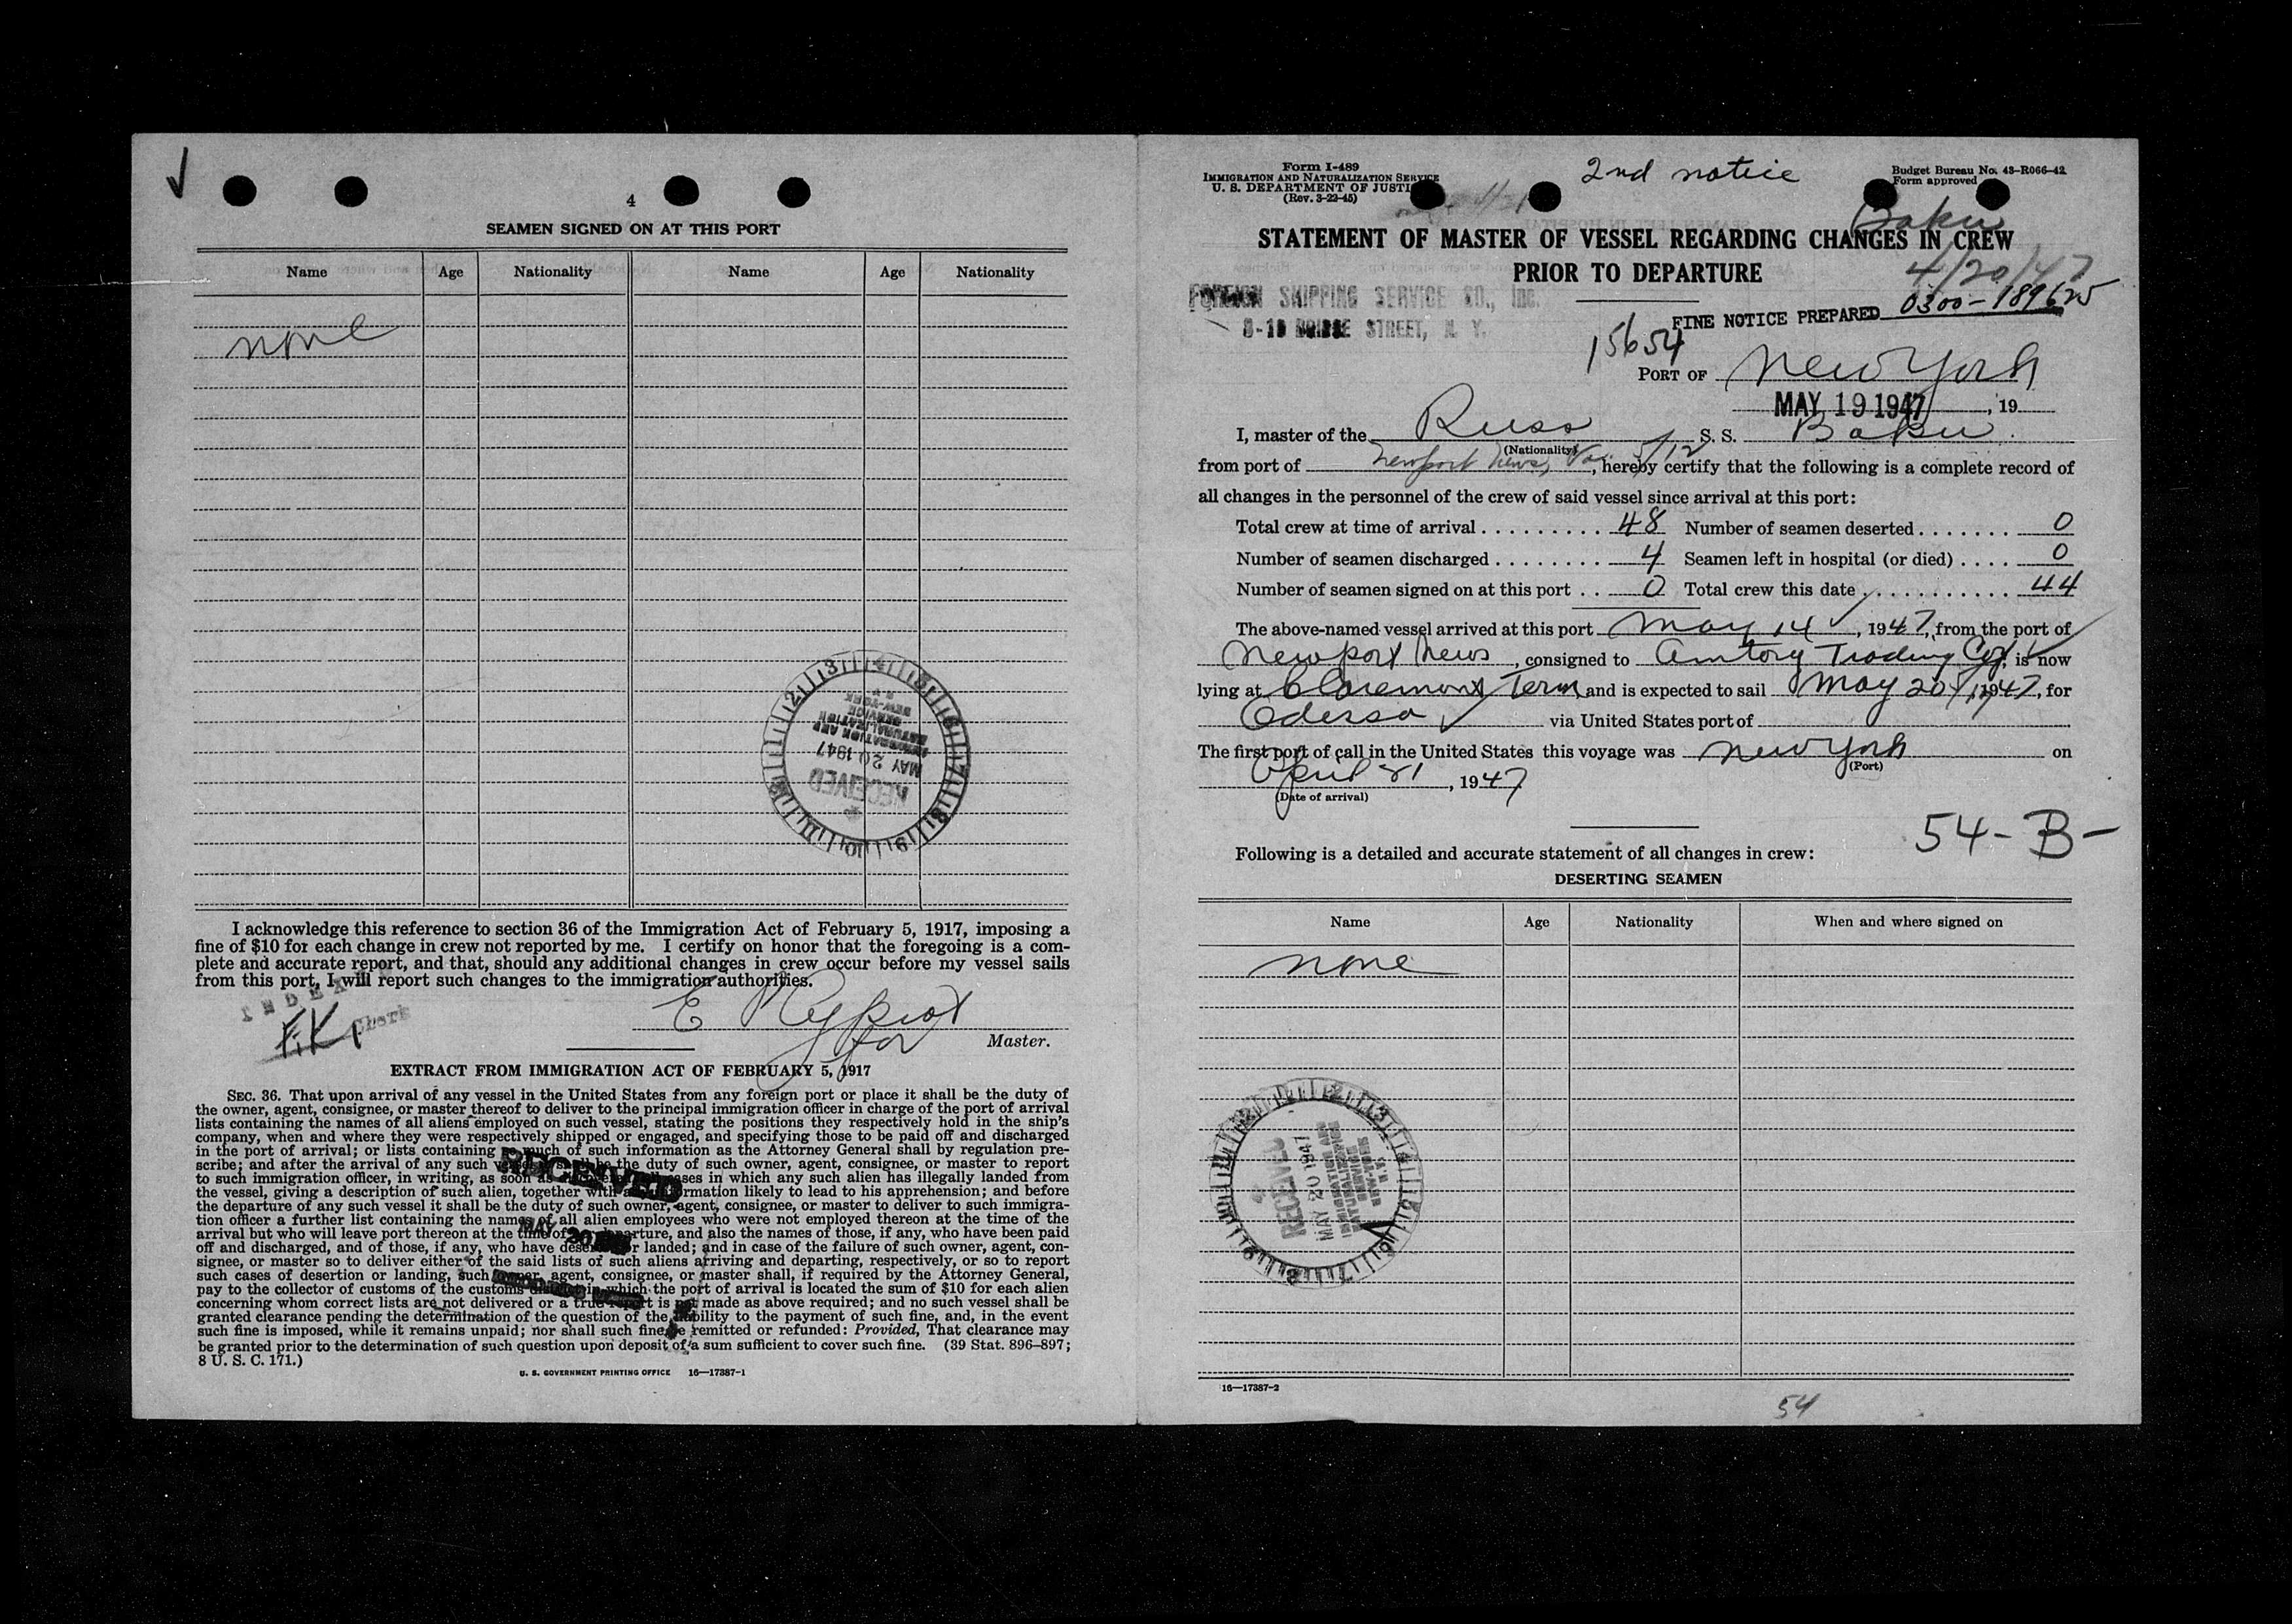 4
SEAMEN SIGNED ON AT THIS PORT
Name Age Nationality Name Age Nationality
none
RECEIVED
MAY 20 1947
IMMIGRATION AND
NATURALIZATION
SERVICE
NEW-YORK
N.Y.
I acknowledge this reference to section 36 of the Immigration Act of February 5, 1917, imposing a
fine of $10 for each change in crew not reported by me. I certify on honor that the foregoing is a com-
plete and accurate report, and that, should any additional changes in crew occur before my vessel sails
from this port, I will report such changes to the immigration authorities.
INDEX
F.K.
E
for
Master.
EXTRACT FROM IMMIGRATION ACT OF FEBRUARY 5, 1917
SEC. 36. That upon arrival of any vessel in the United States from any foreign port or place it shall be the duty of
the owner, agent, consignee, or master thereof to deliver to the principal immigration officer in charge of the port of arrival
lists containing the names of all aliens employed on such vessel, stating the positions they respectively hold in the ship's
company, when and where they were respectively shipped or engaged, and specifying those to be paid off and discharged
in the port of arrival; or lists containing so much of such information as the Attorney General shall by regulation pre-
scribe; and after the arrival of any such vessel it shall be the duty of such owner, agent, consignee, or master to report
to such immigration officer, in writing, as soon as discovered, all cases in which any such alien has illegally landed from
the vessel, giving a description of such alien, together with any information likely to lead to his apprehension; and before
the departure of any such vessel it shall be the duty of such owner, agent, consignee, or master to deliver to such immigra-
tion officer a further list containing the names of all alien employees who were not employed thereon at the time of the
arrival but who will leave port thereon at the time of departure, and also the names of those, if any, who have been paid
off and discharged, and of those, if any, who have deserted or landed; and in case of the failure of such owner, agent, con-
signee, or master so to deliver either of the said lists of such aliens arriving and departing, respectively, or so to report
such cases of desertion or landing, such owner, agent, consignee, or master shall, if required by the Attorney General,
pay to the collector of customs of the customs district in which the port of arrival is located the sum of $10 for each alien
concerning whom correct lists are not delivered or a true report is not made as above required; and no such vessel shall be
granted clearance pending the determination of the question of the liability to the payment of such fine, and, in the event
such fine is imposed, while it remains unpaid; nor shall such fine be remitted or refunded: Provided, That clearance may
be granted prior to the determination of such question upon deposit of a sum sufficient to cover such fine. (39 Stat. 896-897;
8 U. S. C. 171.)
RECEIVED
MAY 20
U. S. GOVERNMENT PRINTING OFFICE 16—17387-1
Form I-489
IMMIGRATION AND NATURALIZATION SERVICE
U. S. DEPARTMENT OF JUSTICE
(Rev. 3-22-45)
2nd notice
Budget Bureau No. 43-R066-42
Form approved
Baku
STATEMENT OF MASTER OF VESSEL REGARDING CHANGES IN CREW
PRIOR TO DEPARTURE
4/20/47
FOREIGN SHIPPING SERVICE CO., Inc.
8-10 BRIDGE STREET, N. Y.
FINE NOTICE PREPARED 0300-189625
15654
PORT OF New York
MAY 19 1947, 19
I, master of the Russ S. S. Baku
(Nationality)
from port of Newport News, Va. 5/12, hereby certify that the following is a complete record of
all changes in the personnel of the crew of said vessel since arrival at this port:
Total crew at time of arrival 48 Number of seamen deserted 0
Number of seamen discharged 4 Seamen left in hospital (or died) 0
Number of seamen signed on at this port 0 Total crew this date 44
The above-named vessel arrived at this port May 14, 1947, from the port of
Newport News, consigned to Amtorg Trading Co, is now
lying at Claremont Term and is expected to sail May 20, 1947, for
Odessa via United States port of
The first port of call in the United States this voyage was New York on
(Port)
April 21, 1947
(Date of arrival)
54-B-
Following is a detailed and accurate statement of all changes in crew:
DESERTING SEAMEN
Name Age Nationality When and where signed on
none
RECEIVED
MAY 20 1947
IMMIGRATION AND
NATURALIZATION
SERVICE
NEW-YORK
N.Y.
16—17387-2
54